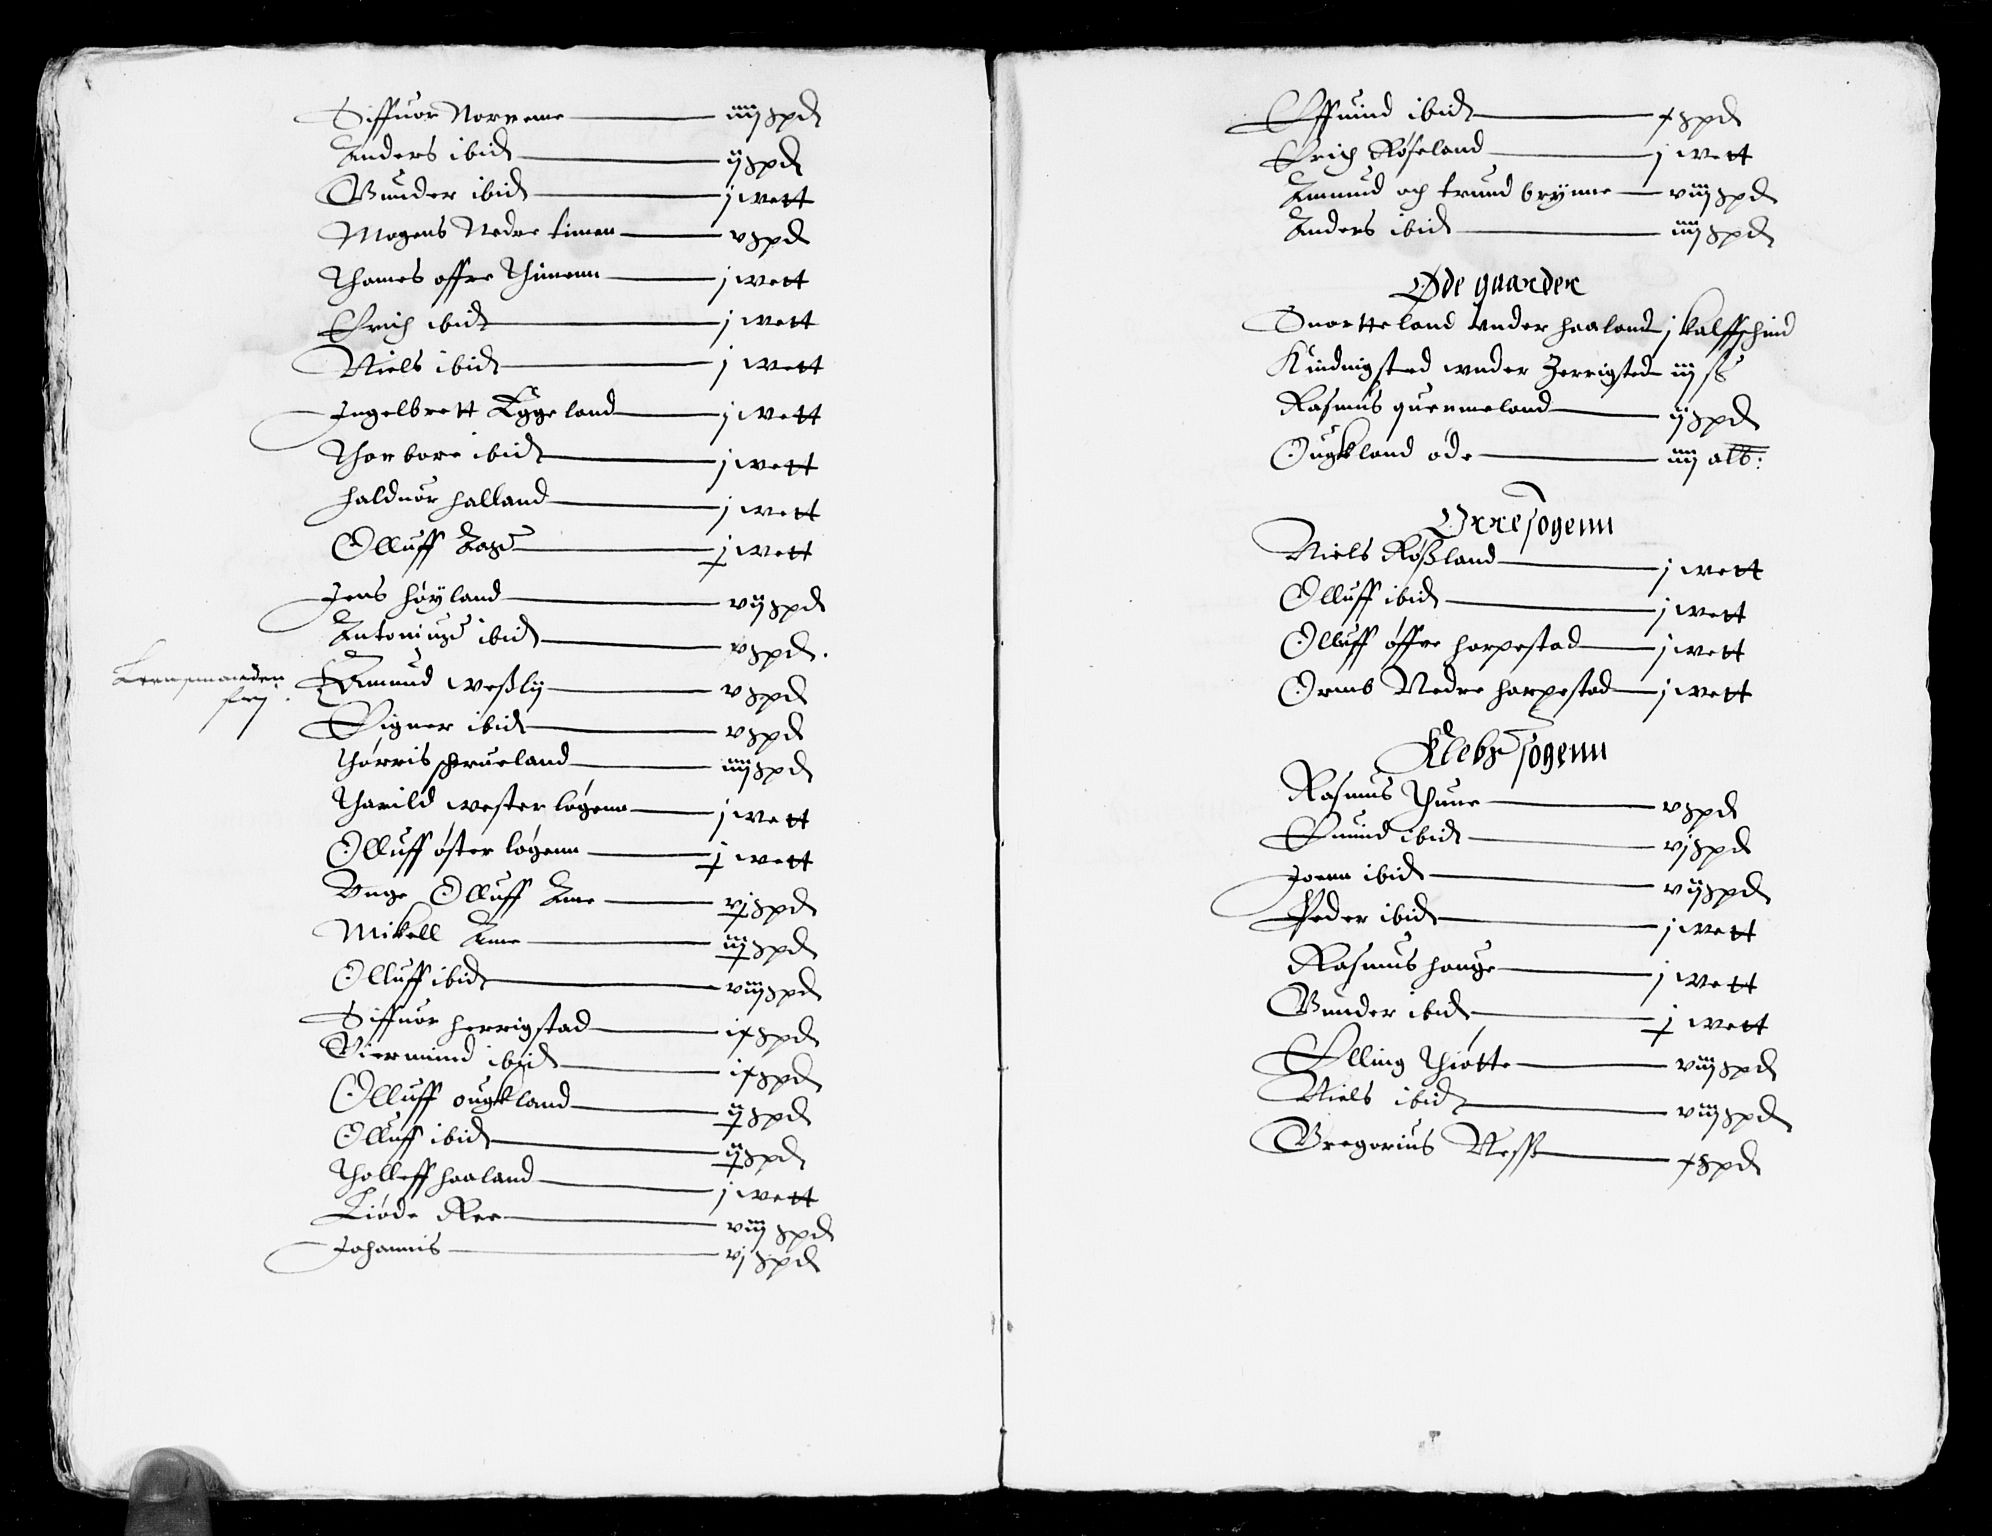 Siffuor Norneme — iiij spd
Anders ibid — ij spd
Gunder ibid — j wett
Mogens Nedre timen — v spd
Thomes offre Thimenn — j wett
Erich ibid — j wett
Niels ibid — j wett
Ingelbrett Eggeland — j wett
Thorbore ibid — j wett
Haldnor Halland — j wett
Olluff Aase — j wett
Jens Høyland — vij spd
Antonius ibid — v spd.
Leensmanden frij.
Amund Weßlij — v spd
Eigner ibid — v spd
Thorris schrueland — iiij spd
Tharild wester løgenn — j wett
Olluff øster løgenn — j wett
Unge Olluff Ane — vj spd
Mikell Ane — iij spd
Olluff ibid — viij spd
Siffuor Herrigstad — ix spd
Giermund ibid — ix spd
Olluff ougkland — ij spd
Olluff ibid — ij spd
Tholleff Haaland — j wett
Liøde Ree — viij spd
Johannis — vj spd
Effuind ibid — x spd
Erich Røseland — j wett
Amund och trund brynne — viij spd
Anders ibid — iiij spd
Øde gaarder
Snortteland Under Haaland j kalffschind
Kindnigsted wnder Herrigsted iij ß
Rasmus quernneland — ij spd
Ougkland øde — iiij alb:
Orre sogenn
Niels Røßland — j wett
Olluff ibid — j wett
Olluff øffre Harpestad — j wett
Ormb Nedre Harpestad — j wett
Klebs sogenn
Rasmus Thuue — v spd
Emind ibid — vj spd
Joenn ibid — vij spd
Peder ibid — j wett
Rasmus Houge — j wett
Gunder ibid — j wett
Elling Thiøtte — viij spd
Niels ibid — viij spd
Gregorius Neß — x spd